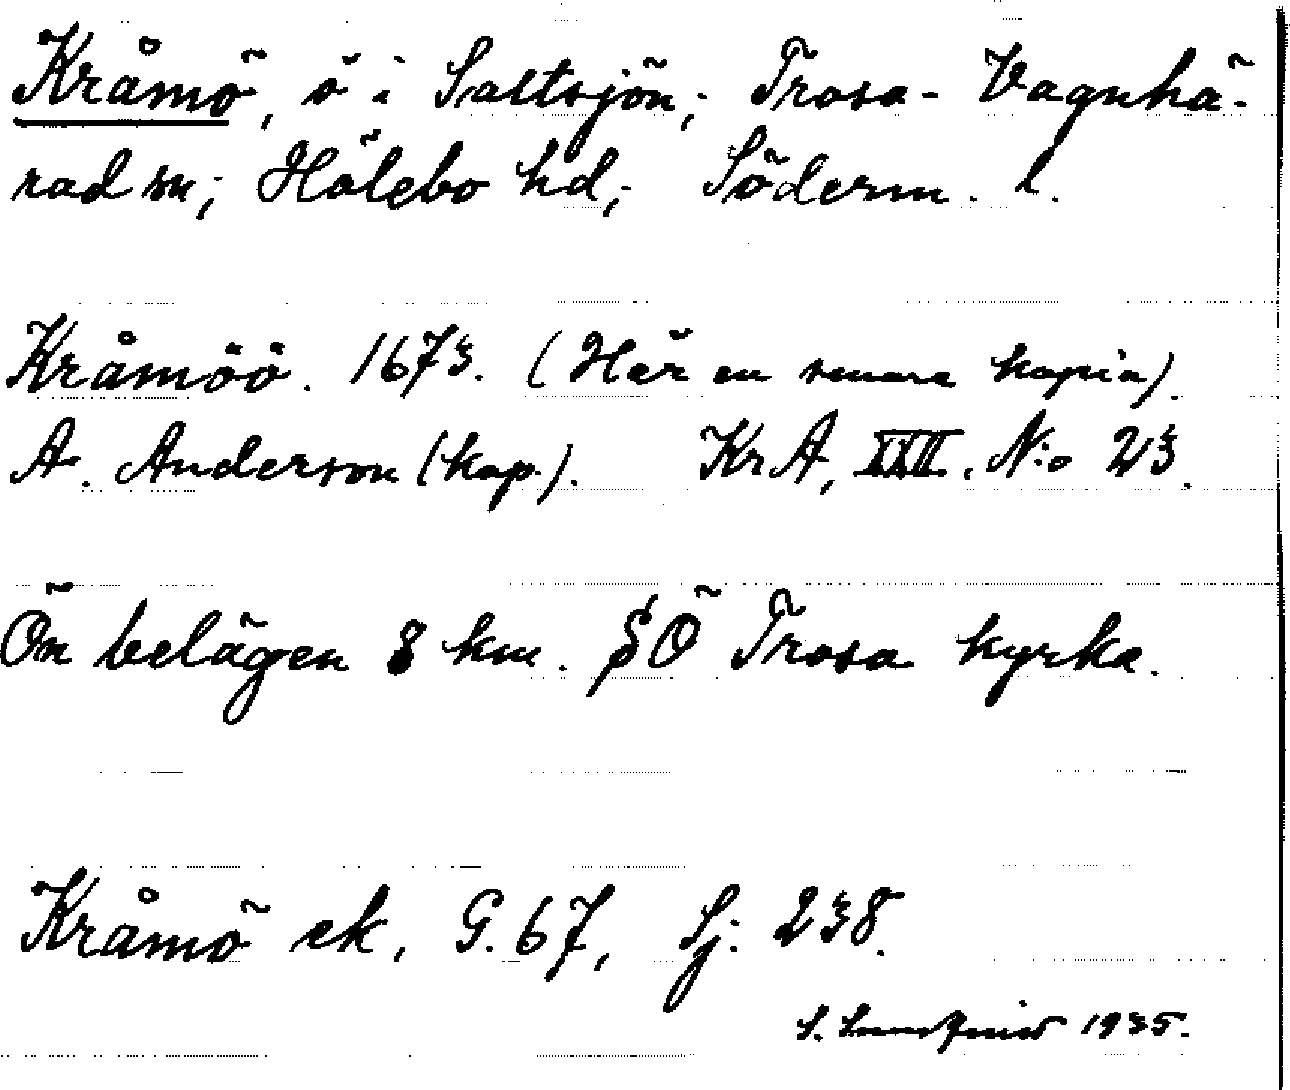 Kråmö, ö i Saltsjön; Trosa-Vagnhä-
rad sn; Hölebo hd; Söderm. l.
Kråmöö. 1673. (Här en senare kopia).
A. Anderson (kop.). KrA, XXII. N:o 23.
Ön belägen 8 km. SÖ Trosa kyrka.
Kråmö ek. G. 67, Sj. 238.
S. 1935.